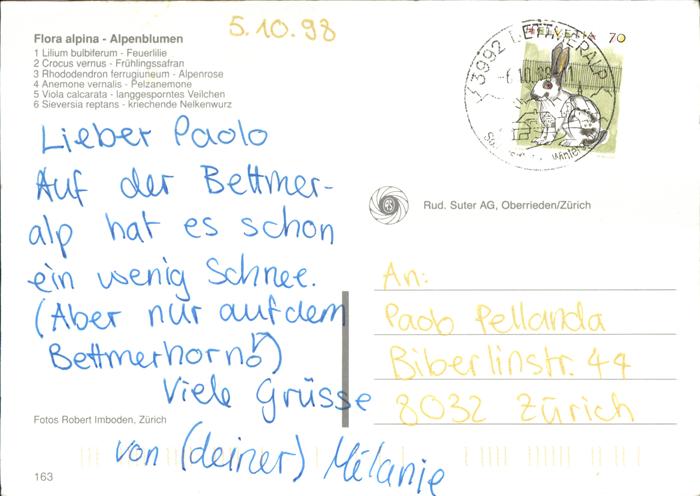 5.10.98
Flora alpina - Alpenblumen
1 Lilium bulbiferum - Feuerlilie
2 Crocus vernus - Frühlingssafran
3 Rhododendron ferrugiuneum - Alpenrose
4 Anemone vernalis - Pelzanemone
5 Viola calcarata - langgesporntes Veilchen
6 Sieversia reptans - kriechende Nelkenwurz
HELVETIA 70
3992 BETTMERALP
-6.10.98-11
Lieber Paolo
Auf der Bettmer-
alp hat es schon
ein wenig Schnee.
(Aber nur auf dem
Bettmerhorn)
Viele Grüsse
von (deiner) Mélanie
Rud. Suter AG, Oberrieden/Zürich
An:
Paolo Pellanda
Biberlinstr. 44
8032 Zürich
Fotos Robert Imboden, Zürich
163